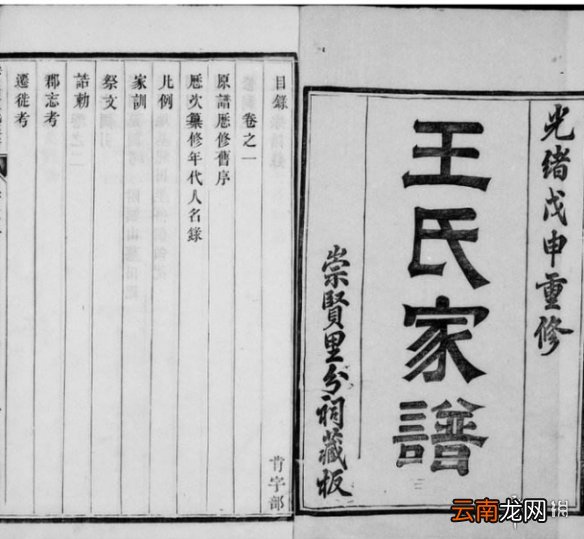 光緒戊申重修
王氏家譜
崇賢里分祠藏板
目錄
卷之一
原譜歷修舊序
歷次纂修年代人名錄
凡例
家訓
祭文
誥勅
郡志考
遷徙考
肯字部
云南龙网